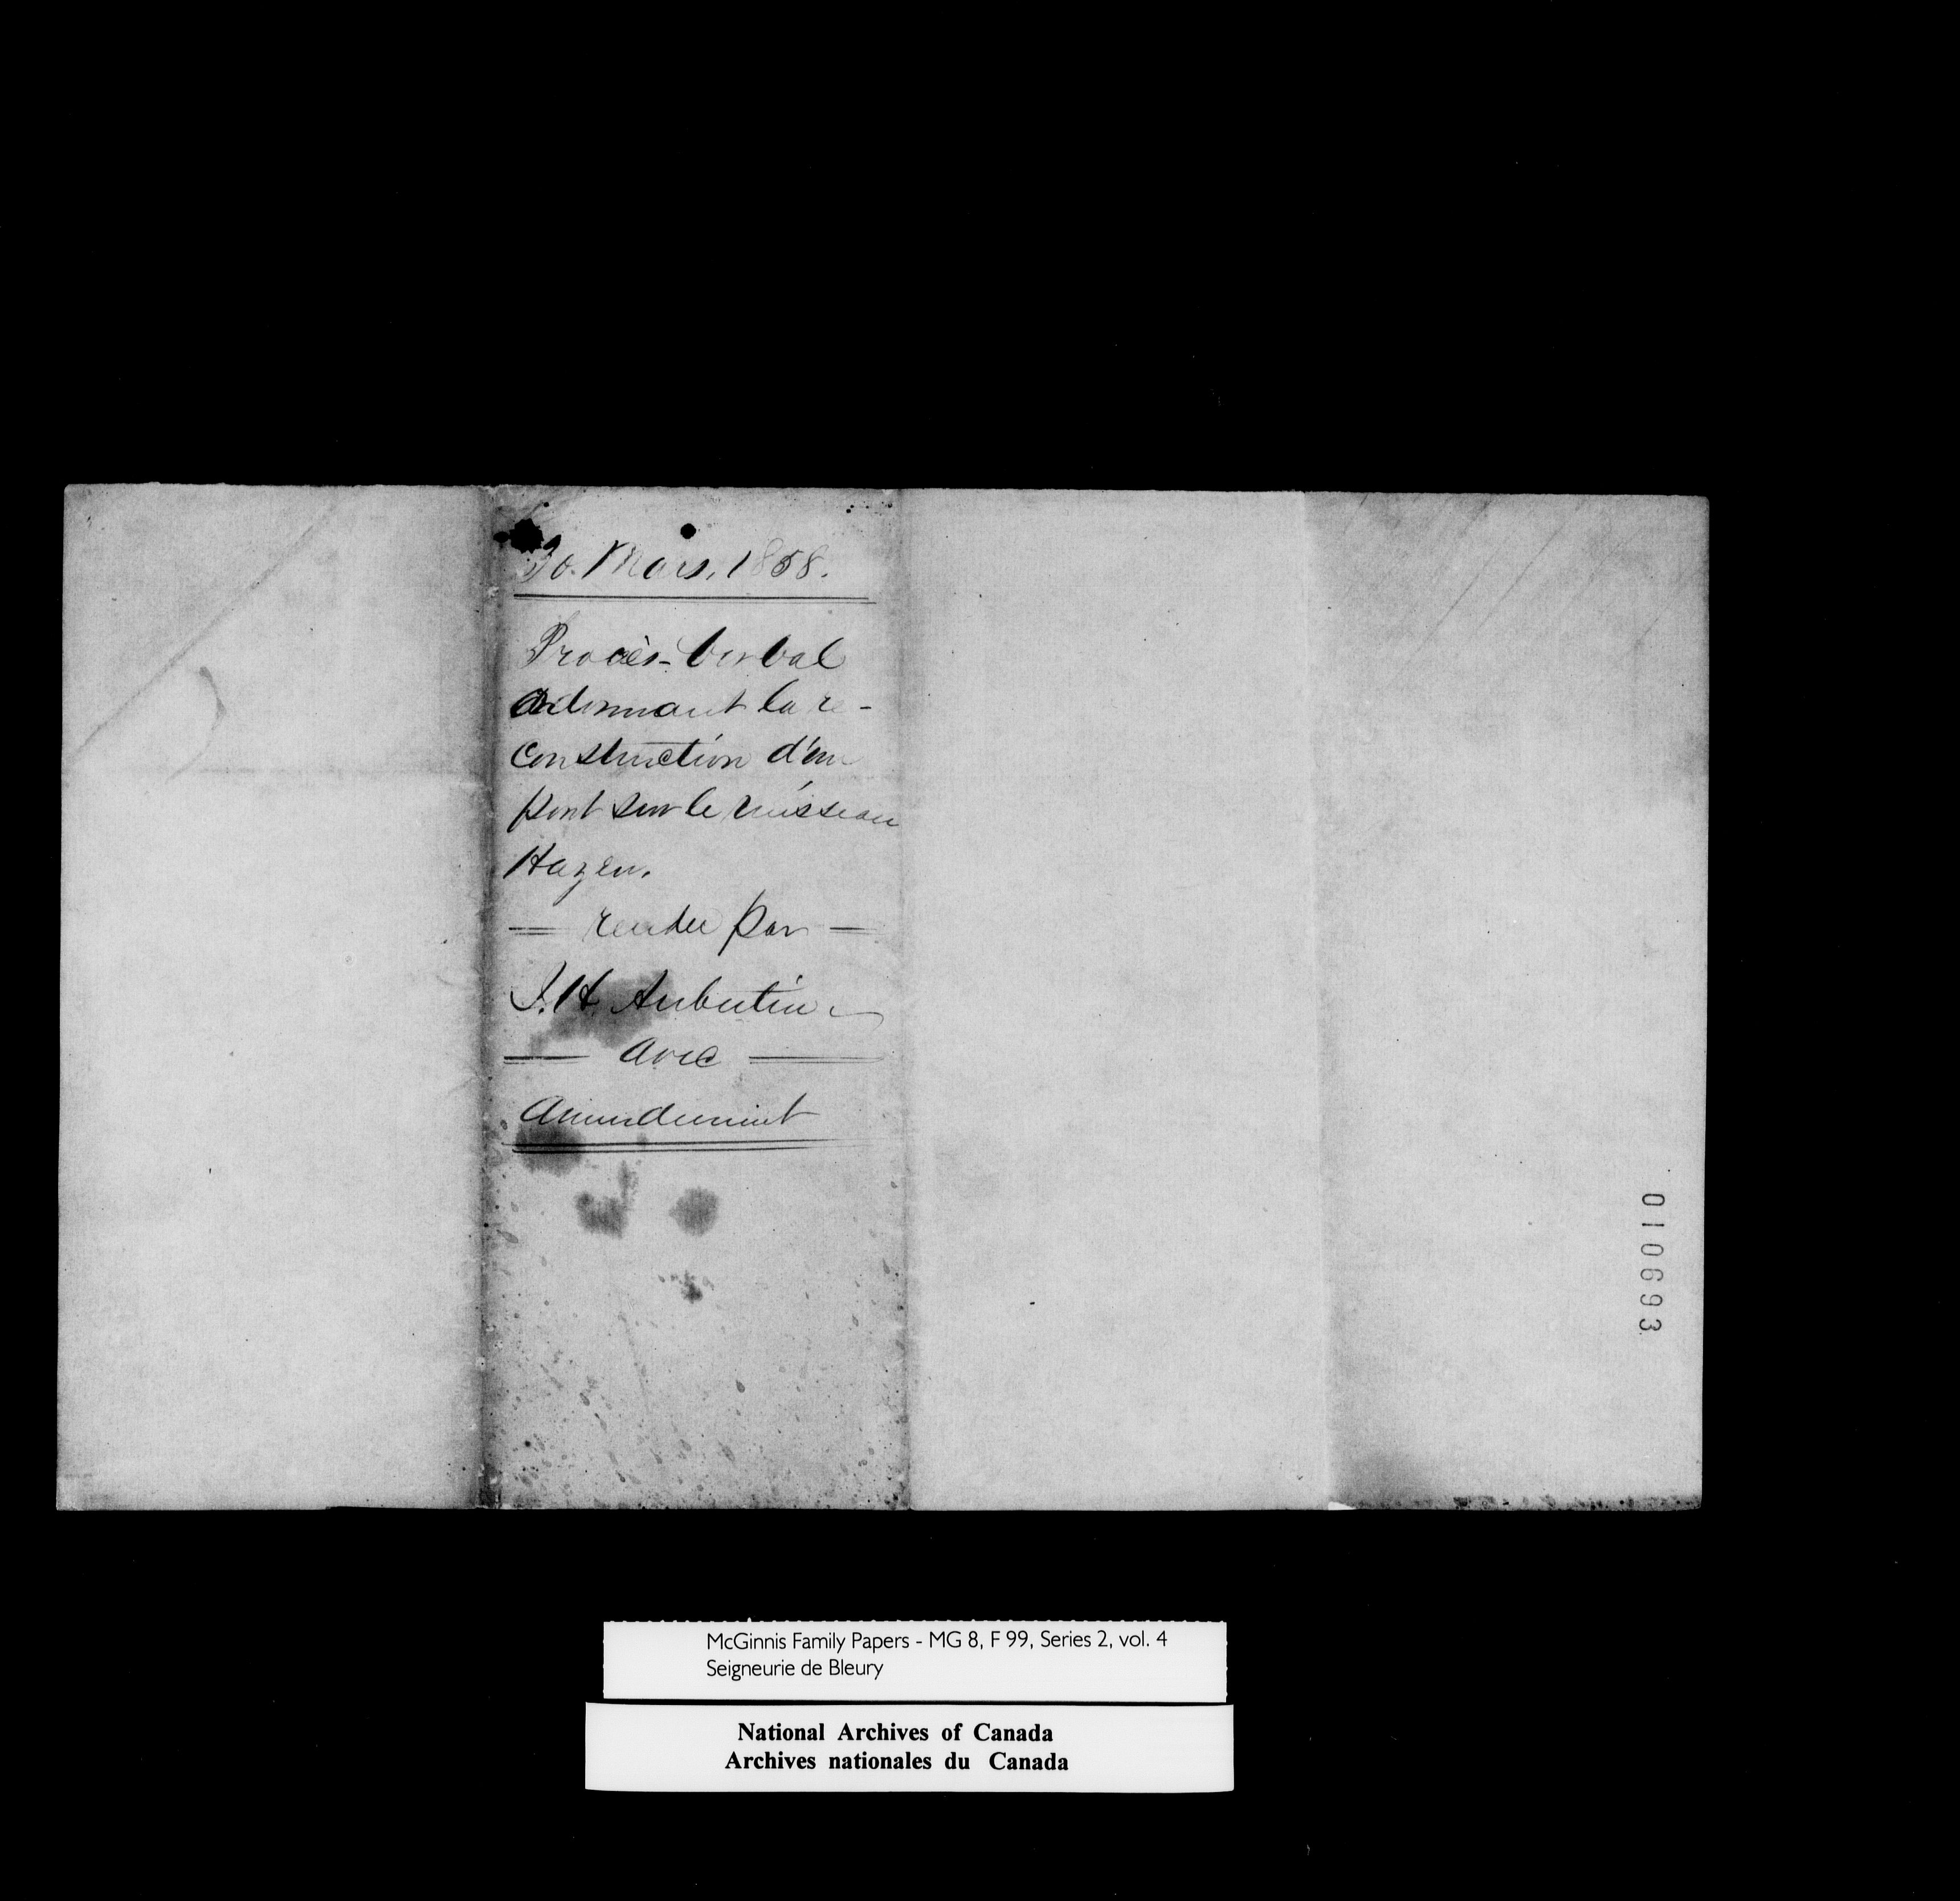 30. Mars. 1858.
Procès-Verbal
ordonnant la re-
construction d'un
pont sur le ruisseau
Hazen.
= rendu par =
J. H. Aubertin
= avec =
Amendement
010693
McGinnis Family Papers - MG 8, F 99, Series 2, vol. 4
Seigneurie de Bleury
National Archives of Canada
Archives nationales du Canada